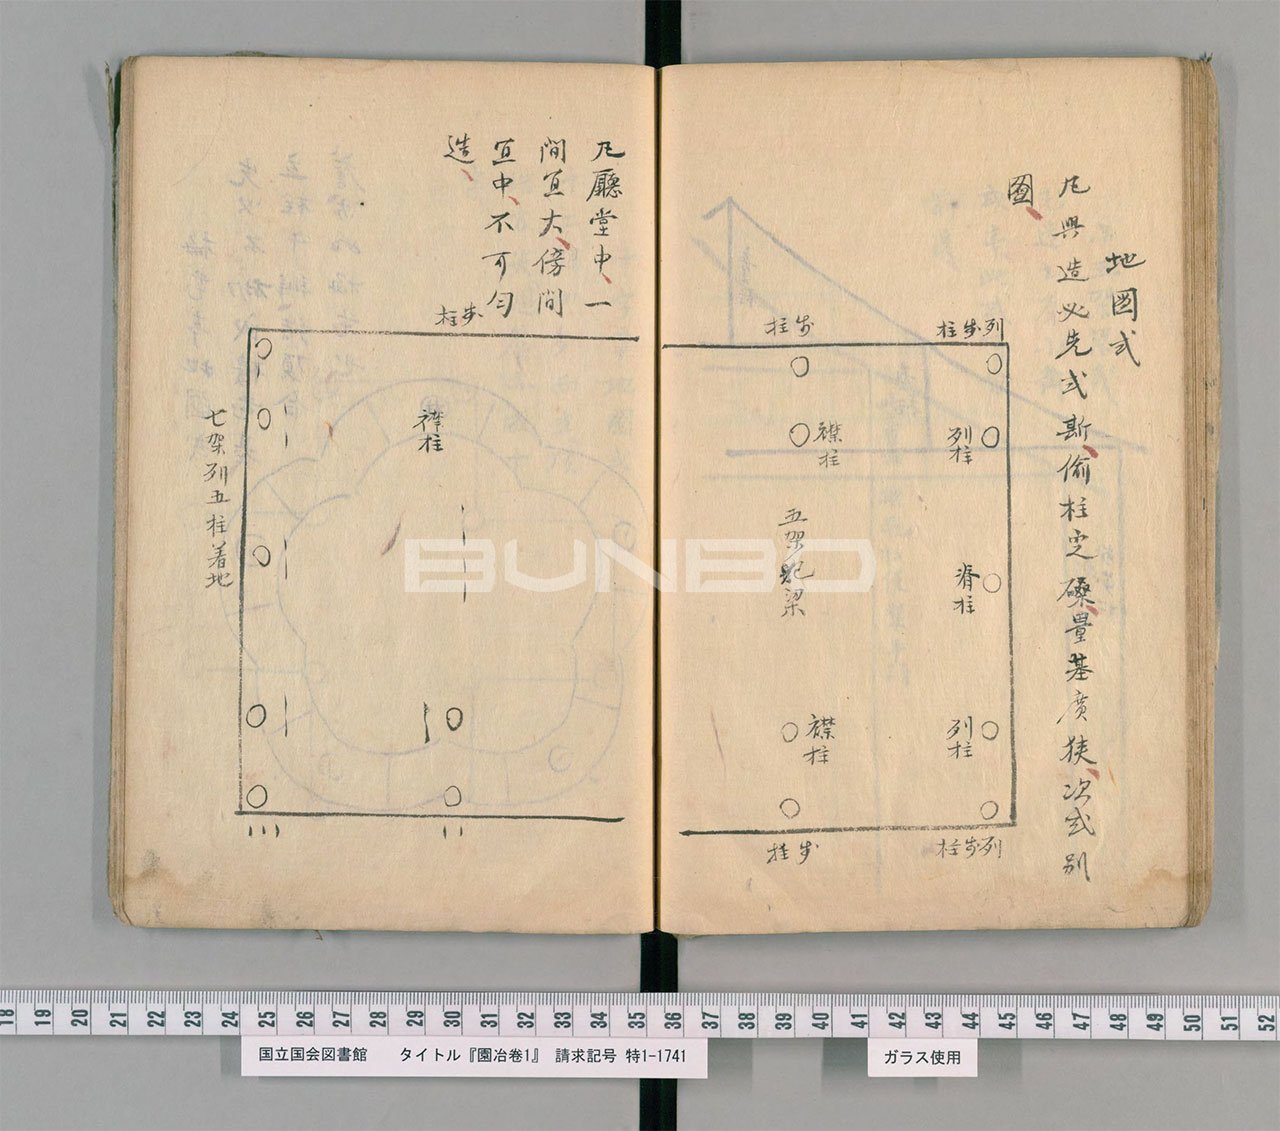 地圖式
凡興造必先式斯偷柱定磉量基廣狹次式別
圖
列步柱
步柱
襟柱
列柱
五架
梁
脊柱
襟柱
列柱
步柱
列步柱
凡廳堂中一
間宜大傍間
宜中不可勻
造
步柱
襟柱
七架列五柱着地
BUNBO
18 19 20 21 22 23 24 25 26 27 28 29 30 31 32 33 34 35 36 37 38 39 40 41 42 43 44 45 46 47 48 49 50 51 52
国立国会図書館 タイトル『園冶巻1』 請求記号 特1-1741
ガラス使用